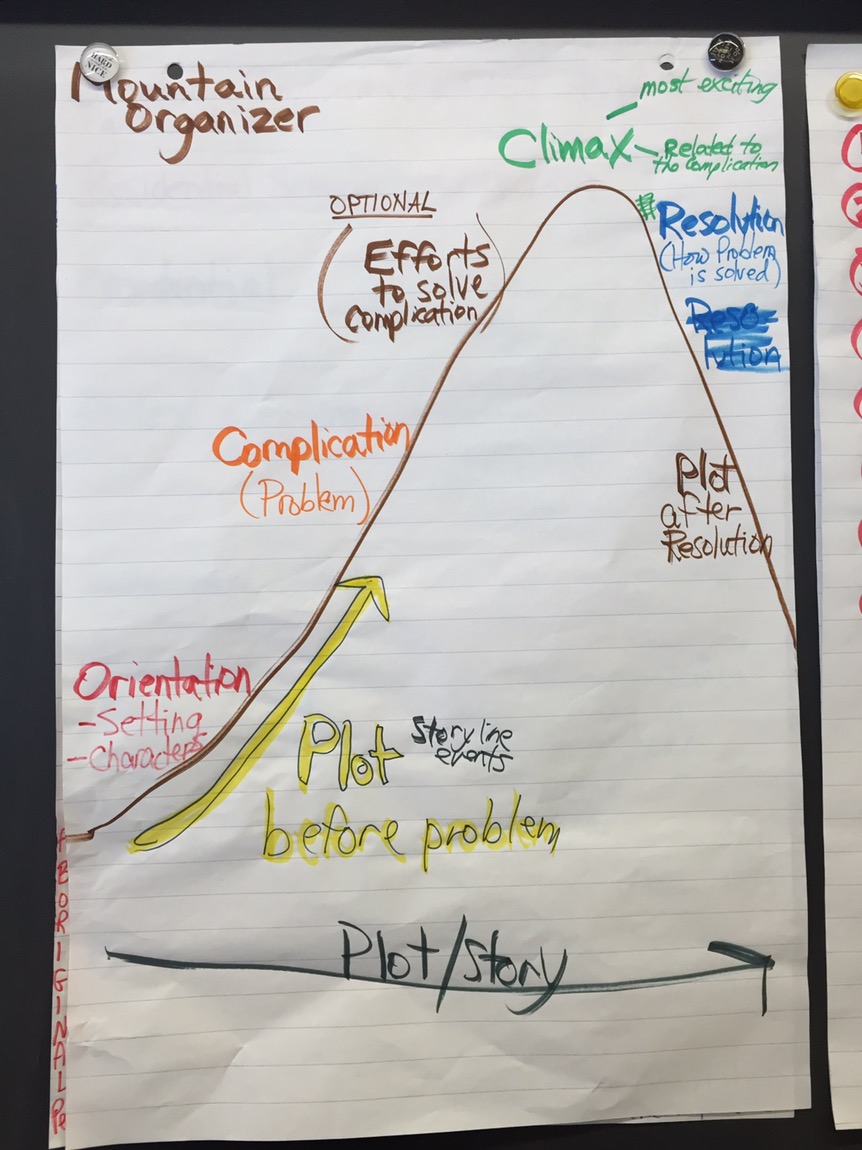 HARD
NICE
Mountain
Organizer
most exciting
Climax
Related to
the Complication
OPTIONAL
(Efforts
to solve
Complication)
Resolution
(How Problem
is solved)
Reso-
lution
Complication
(Problem)
Plot
after
Resolution
Orientation
-Setting
-Characters
Plot
Story line
events
before problem
Plot/Story